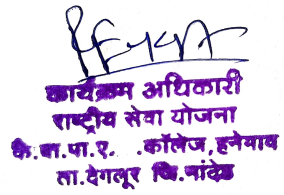 कार्यक्रम अधिकारी
राष्ट्रीय सेवा योजना
कै.बा.पा.ए. .कॉलेज, हनेगाव
ता.देगलूर जि.नांदेड